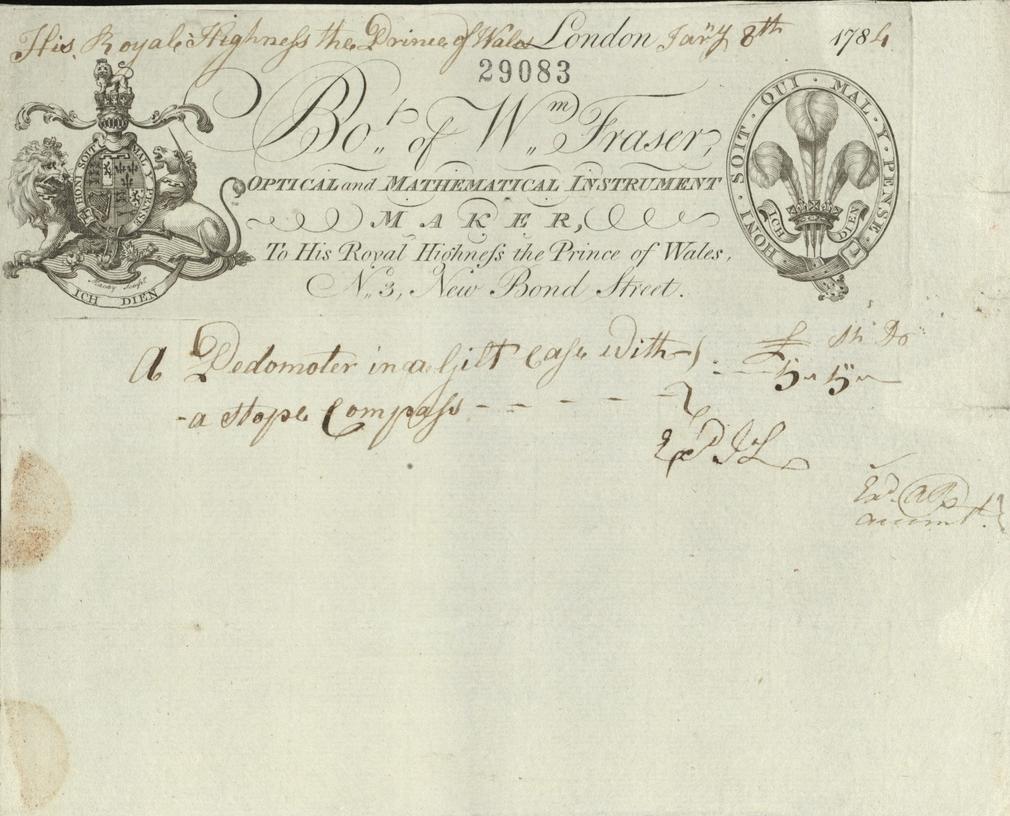 His Royal Highness the Prince of Wales London Jany 8th 1784
29083
Bot. of Wm. Fraser,
OPTICAL and MATHEMATICAL INSTRUMENT
MAKER,
To His Royal Highneſs the Prince of Wales,
No. 3, New Bond Street.
HONI SOIT QUI MAL Y PENSE
ICH DIEN
HONI · SOIT · QUI · MAL · Y · PENSE ·
ICH DIEN
£ Sh D
A Pedomoter in a Gilt Case With 5 " 5 "
a Stope Compass
Exd